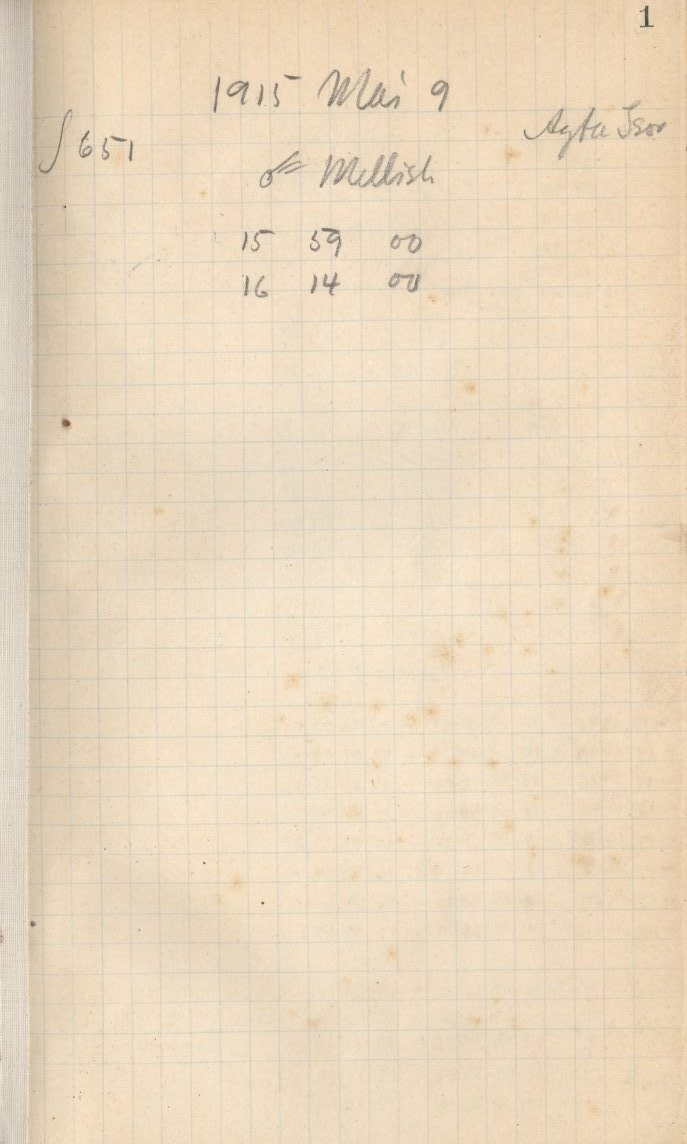 1
1915 Mai 9
∫ 651
Agfa Isor
☄ Mellish
15 59 00
16 14 00